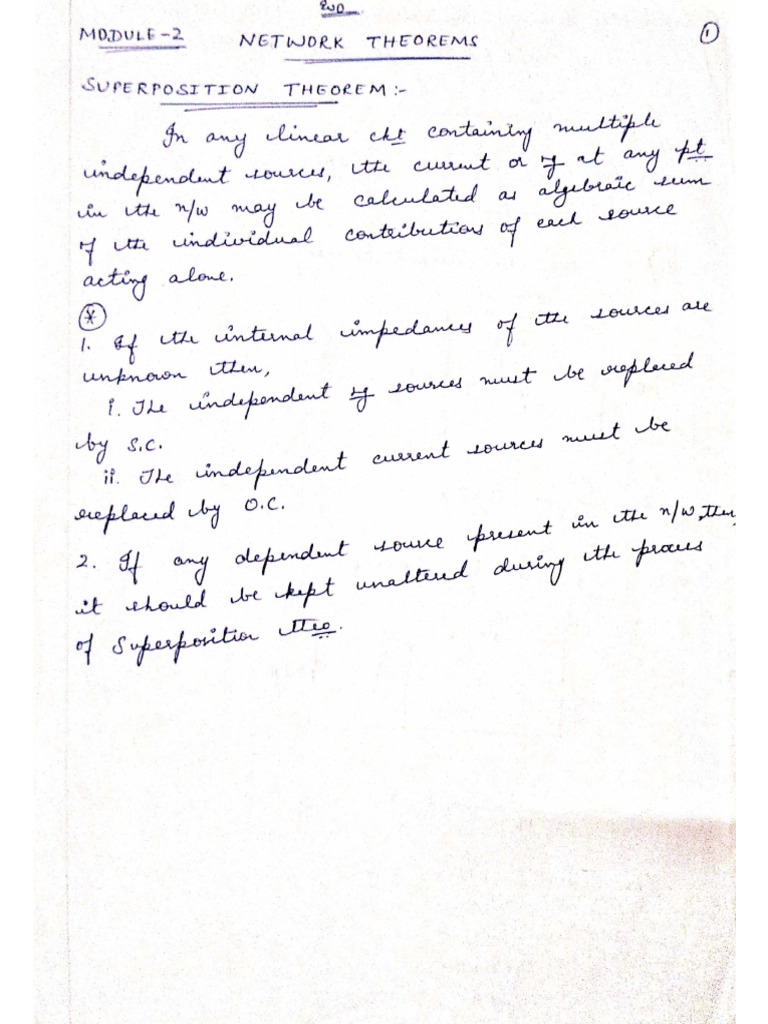 MODULE-2 NETWORK THEOREMS ①
SUPERPOSITION THEOREM:-
In any linear ckt containing multiple
independent sources, the current or at any pt
in the n/w may be calculated as algebraic sum
of the individual contributions of each source
acting alone.
*
1. If the internal impedances of the sources are
unknown then,
i. The independent sources must be replaced
by S.C.
ii. The independent current sources must be
replaced by O.C.
2. If any dependent source present in the n/w, then
it should be kept unaltered during the process
of Superposition theo.